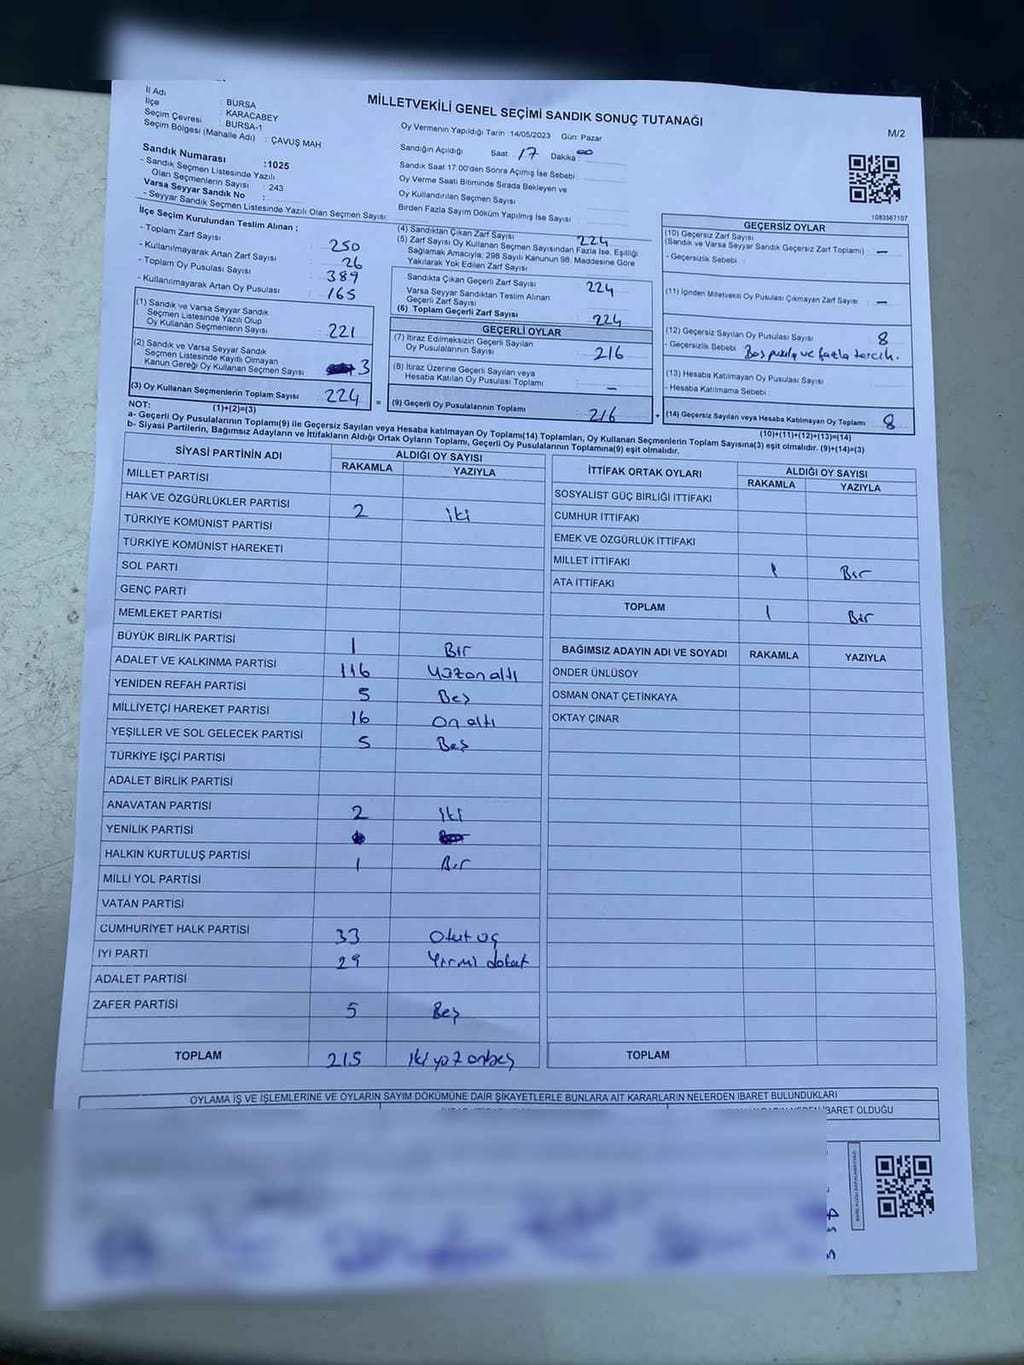 MİLLETVEKİLİ GENEL SEÇİMİ SANDIK SONUÇ TUTANAĞI
M/2
İl Adı : BURSA
İlçe : KARACABEY
Seçim Çevresi : BURSA-1
Seçim Bölgesi (Mahalle Adı) : ÇAVUŞ MAH
Sandık Numarası :1025
- Sandık Seçmen Listesinde Yazılı
Olan Seçmenlerin Sayısı : 243
Varsa Seyyar Sandık No :
- Seyyar Sandık Seçmen Listesinde Yazılı Olan Seçmen Sayısı:
Oy Vermenin Yapıldığı Tarih 14/05/2023 Gün: Pazar
Sandığın Açıldığı Saat 17 Dakika 00
Sandık Saat 17.00'den Sonra Açımış İse Sebebi
Oy Verme Saati Bitiminde Sırada Bekleyen ve
Oy Kullandırılan Seçmen Sayısı
Birden Fazla Sayım Döküm Yapılmış İse Sayısı
1083567107
İlçe Seçim Kurulundan Teslim Alınan ;
- Toplam Zarf Sayısı 250
- Kullanılmayarak Artan Zarf Sayısı 26
- Toplam Oy Pusulası Sayısı 389
- Kullanılmayarak Artan Oy Pusulası 165
(1) Sandık ve Varsa Seyyar Sandık
Seçmen Listesinde Yazılı Olup
Oy Kullanan Seçmenlerin Sayısı 221
(2) Sandık ve Varsa Seyyar Sandık
Seçmen Listesinde Kayıtlı Olmayan
Kanun Gereği Oy Kullanan Seçmen Sayısı 3
(3) Oy Kullanan Seçmenlerin Toplam Sayısı 224 =
(1)+(2)=(3)
(4) Sandıktan Çıkan Zarf Sayısı 224
(5) Zarf Sayısı Oy Kullanan Seçmen Sayısından Fazla İse, Eşitliği
Sağlamak Amacıyla; 298 Sayılı Kanunun 98. Maddesine Göre
Yakılarak Yok Edilen Zarf Sayısı
Sandıkta Çıkan Geçerli Zarf Sayısı 224
Varsa Seyyar Sandıktan Teslim Alınan
Geçerli Zarf Sayısı
(6) Toplam Geçerli Zarf Sayısı 224
GEÇERLİ OYLAR
(7) İtiraz Edilmeksizin Geçerli Sayılan
Oy Pusulalarının Sayısı 216
(8) İtiraz Üzerine Geçerli Sayılan veya
Hesaba Katılan Oy Pusulası Toplamı –
(9) Geçerli Oy Pusulalarının Toplamı 216 +
GEÇERSİZ OYLAR
(10) Geçersiz Zarf Sayısı
(Sandık ve Varsa Seyyar Sandık Geçersiz Zarf Toplamı) –
- Geçersizlik Sebebi
(11) İçinden Milletvekili Oy Pusulası Çıkmayan Zarf Sayısı –
(12) Geçersiz Sayılan Oy Pusulası Sayısı 8
- Geçersizlik Sebebi Boş pusula ve fazla tercih.
(13) Hesaba Katılmayan Oy Pusulası Sayısı
- Hesaba Katılmama Sebebi
(14) Geçersiz Sayılan veya Hesaba Katılmayan Oy Toplamı 8
(10)+(11)+(12)+(13)=(14)
NOT:
a- Geçerli Oy Pusulalarının Toplamı(9) ile Geçersiz Sayılan veya Hesaba katılmayan Oy Toplamı(14) Toplamları, Oy Kullanan Seçmenlerin Toplam Sayısına(3) eşit olmalıdır. (9)+(14)=(3)
b- Siyasi Partilerin, Bağımsız Adayların ve İttifakların Aldığı Ortak Oyların Toplamı, Geçerli Oy Pusulalarının Toplamına(9) eşit olmalıdır.
SİYASİ PARTİNİN ADI ALDIĞI OY SAYISI
RAKAMLA YAZIYLA
MİLLET PARTİSİ
HAK VE ÖZGÜRLÜKLER PARTİSİ 2 iki
TÜRKİYE KOMÜNİST PARTİSİ
TÜRKİYE KOMÜNİST HAREKETİ
SOL PARTİ
GENÇ PARTİ
MEMLEKET PARTİSİ
BÜYÜK BİRLİK PARTİSİ 1 Bir
ADALET VE KALKINMA PARTİSİ 116 Yüzonaltı
YENİDEN REFAH PARTİSİ 5 Beş
MİLLİYETÇİ HAREKET PARTİSİ 16 On altı
YEŞİLLER VE SOL GELECEK PARTİSİ 5 Beş
TÜRKİYE İŞÇİ PARTİSİ
ADALET BİRLİK PARTİSİ
ANAVATAN PARTİSİ 2 iki
YENİLİK PARTİSİ
HALKIN KURTULUŞ PARTİSİ 1 Bir
MİLLİ YOL PARTİSİ
VATAN PARTİSİ
CUMHURİYET HALK PARTİSİ 33 Otuz üç
İYİ PARTİ 29 Yirmi dokuz
ADALET PARTİSİ
ZAFER PARTİSİ 5 Beş
TOPLAM 215 iki yüz onbeş
İTTİFAK ORTAK OYLARI ALDIĞI OY SAYISI
RAKAMLA YAZIYLA
SOSYALİST GÜÇ BİRLİĞİ İTTİFAKI
CUMHUR İTTİFAKI
EMEK VE ÖZGÜRLÜK İTTİFAKI
MİLLET İTTİFAKI 1 Bir
ATA İTTİFAKI
TOPLAM 1 Bir
BAĞIMSIZ ADAYIN ADI VE SOYADI RAKAMLA YAZIYLA
ÖNDER ÜNLÜSOY
OSMAN ONAT ÇETİNKAYA
OKTAY ÇINAR
TOPLAM
OYLAMA İŞ VE İŞLEMLERİNE VE OYLARIN SAYIM DÖKÜMÜNE DAİR ŞİKAYETLERLE BUNLARA AİT KARARLARIN NELERDEN İBARET BULUNDUKLARI
İBARET OLDUĞU